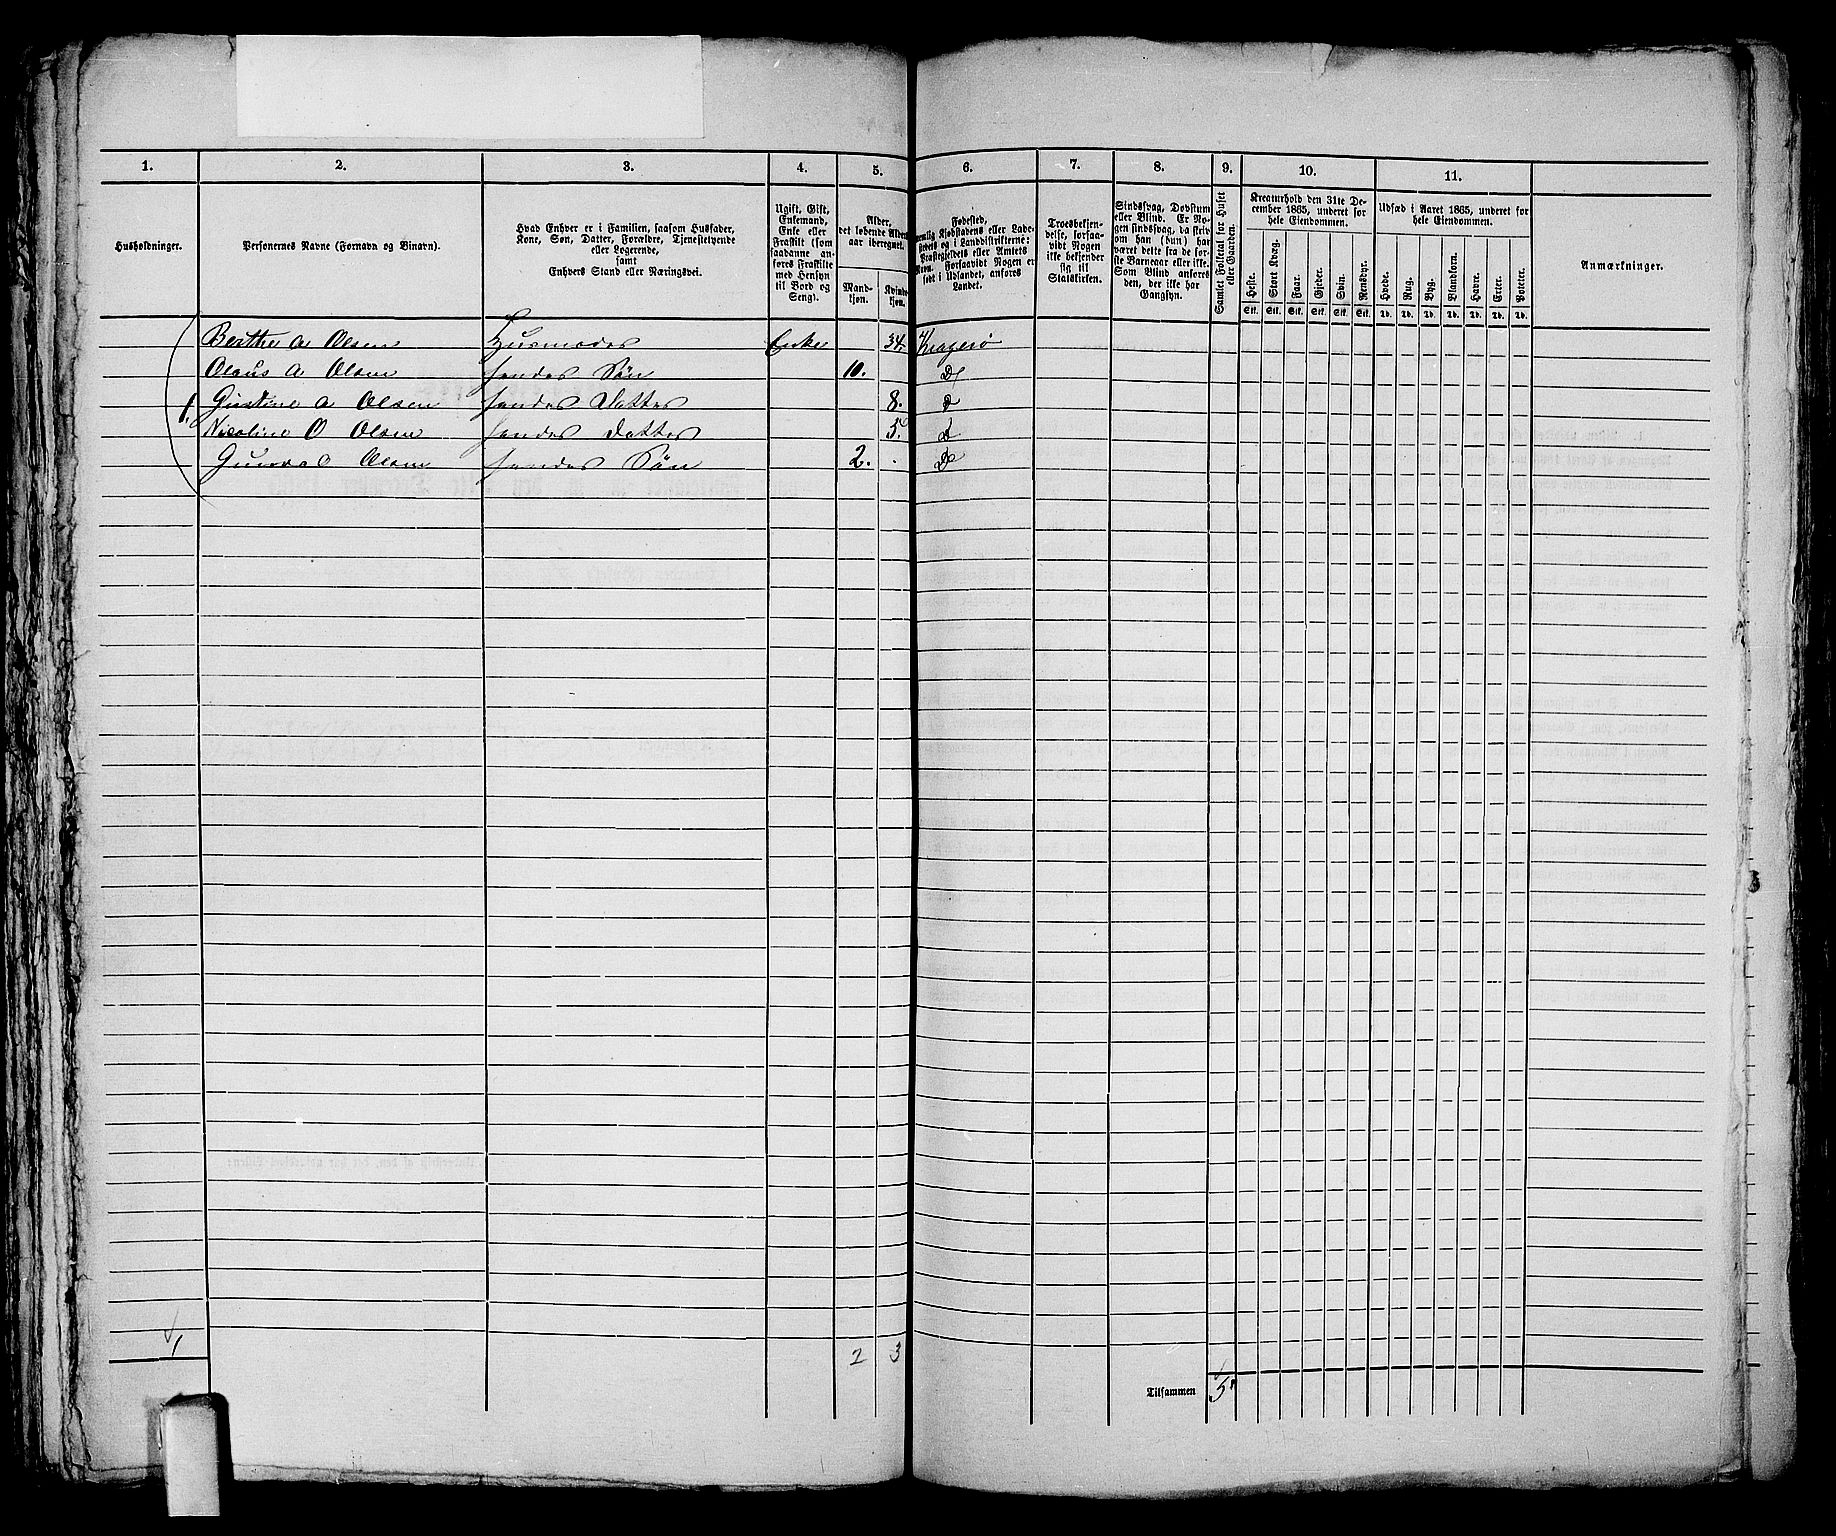 1. 2. 3. 4. 5. 6. 7. 8. 9. 10. 11.
Husholdninger.
Personernes Navne (Fornavn og Binavn).
Hvad Enhver er i Familien, saasom Husfader,
Kone, Søn, Datter, Forældre, Tjenestetyende
eller Logerende,
samt
Enhvers Stand eller Næringsvei.
Ugift, Gift,
Enkemand,
Enke eller
Fraskilt (som
saadanne an-
føres Fraskilte
med Hensyn
til Bord og
Seng).
Alder,
det løbende Alders-
aar iberegnet.
Mand-
kjøn.
Kvinde-
kjøn.
Fødested,
nemlig Kjøbstadens eller Lade-
stedets og i Landdistrikterne:
Præstegjeldets eller Amtets
Navn. Forsaavidt Nogen er
født i Udlandet, anføres
Landet.
Troesbekjen-
delse, forsaa-
vidt Nogen
ikke bekjender
sig til
Statskirken.
Sindssvag, Døvstum
eller Blind. Er No-
gen sindssvag, da skriv
om han (hun) har
været dette fra de før-
ste Barneaar eller ikke.
Som Blind anføres
den, der ikke har
Gangsyn.
Samlet Folketal for Huset
eller Gaarden.
Kreaturhold den 31te De-
cember 1865, underet for
hele Eiendommen.
Heste. Stort Kvæg. Faar. Gjeder. Svin. Rensdyr.
Stk. Stk. Stk. Stk. Stk. Stk.
Udsæd i Aaret 1865, underet for
hele Eiendommen.
Hvede. Rug. Byg. Blandkorn. Havre. Erter. Poteter.
Td. Td. Td. Td. Td. Td. Td.
Anmærkninger.
Berthe A Olsen Husmoder Enke 34. Kragerø
Olaus A Olsen hendes Søn 10. Do
Gustine A Olsen hendes Datter 8. d
1. Nicoline O Olsen hendes Datter 5. D
Olsen hendes Søn 2. Do
1 2 3
Tilsammen 5